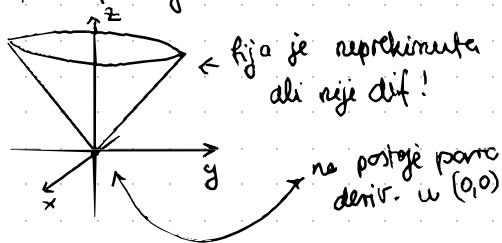 z
← fija je neprekinuta
ali nije dif!
y
x
ne postoje parc
deriv. u (0,0)